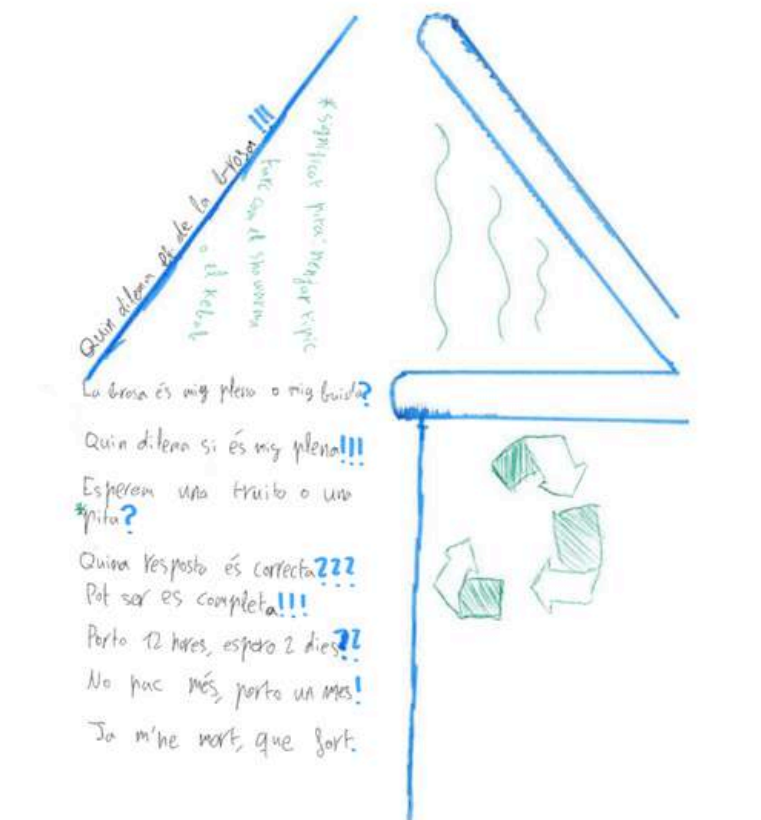 Quin dilema el de la brosa!!!
*significat pita: menjar típic
turc com el shawarma
o el kebab
La brosa és mig plena o mig buida?
Quin dilema si és mig plena!!!
Esperem una truita o una
*pita?
Quina resposta és correcta???
Pot ser es completa!!!
Porto 12 hores, espero 2 dies??
No puc més, porto un mes!
Ja m'he mort, que fort.